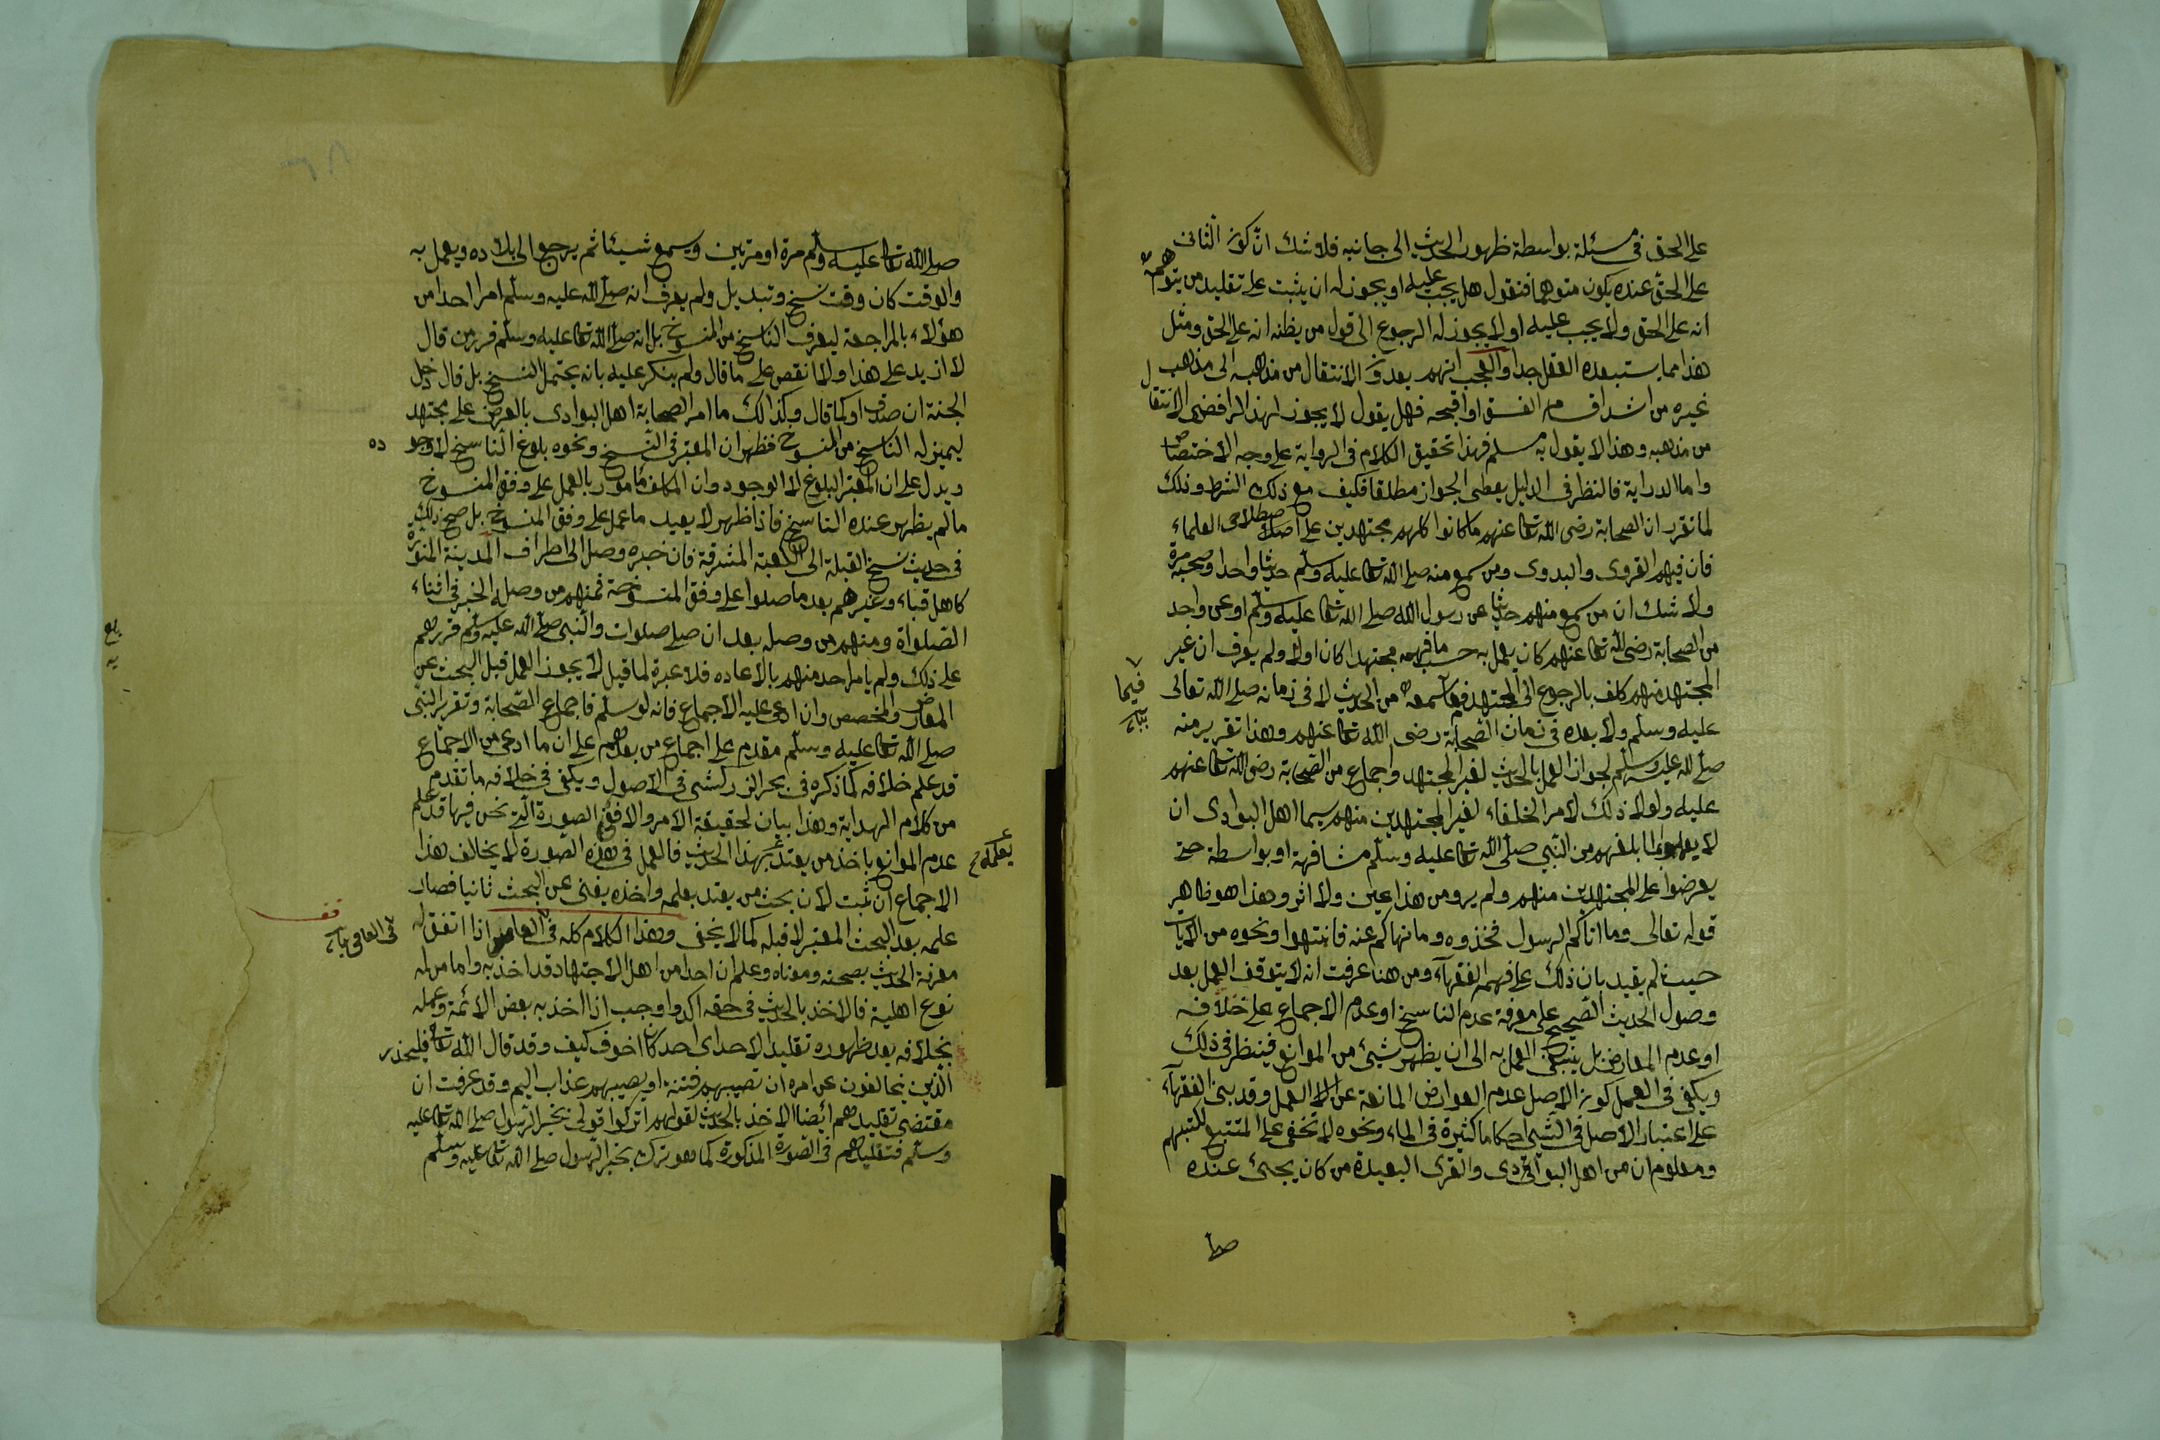 على الحق في مسئلة بواسطة ظهور الحديث الى جانبه فلا شك ان كون الثاني
على الحق عنده يكون متوهما فنقول هل يجب عليه او يجوز له ان يثبت على تقليد من يتوهم
انه على الحق ولا يجب عليه او لا يجوز له الرجوع الى قول من يظنه انه على الحق ومثل
هذا مما يستبعده العقل جدا والعجب انهم يعدون الانتقال من مذهبه الى مذهب
غيره من اشد الفسق او اقبحه فهل يقول لا يجوز لهذا الرافضي الانتقال
من مذهبه وهذا لا يقول به مسلم فهذا تحقيق الكلام في الرواية على وجه الاختصا
واما الدراية فالنظر في الدليل يعطي الجواز مطلقا فكيف مع ذلك الشرط وذلك
لما تقرر ان الصحابة رضى الله تعا عنهم ما كانوا كلهم مجتهدين على اصطلاح العلماء
فان فيهم القروى والبدوى ومن سمع منه صلى الله تعا عليه وسلم حديثا واحدا وصحبه مرة
ولا شك ان من سمع منهم حديثا عن رسول الله صلى الله تعا عليه وسلم او عن واحد
من الصحابة رضى الله تعا عنهم كان يعمل به حسب ما فهمه مجتهدا كان او لا ولم يعرف ان غير
المجتهد منهم كلف بالرجوع الى المجتهد فيما سمعه من الحديث لا في زمانه صلى الله تعالى
فيما
بيان
عليه وسلم ولا بعده في زمان الصحابة رضى الله تعا عنهم وهذا تقرير منه
صلى الله عليه وسلم لجواز العمل بالحديث لغير المجتهد واجماع من الصحابة رضى الله تعا عنهم
عليه ولولا ذلك لامر الخلفاء لغير المجتهدين منهم سيما اهل البوادى ان
لا يعملوا بما بلغهم من النبي صلى الله تعا عليه وسلم مشافهة او بواسطة حتى
يعرضوا على المجتهدين منهم ولم يرو من هذا عين ولا اثر وهذا هو ظاهر
قوله تعالى وما اتاكم الرسول فخذوه وما نهاكم عنه فانتهوا ونحوه من الايات
حيث لم يقيد بان ذلك على فهم الفقهاء ومن هنا عرفت انه لا يتوقف العمل بعد
وصول الحديث الصحيح على معرفة عدم الناسخ او عدم الاجماع على خلافه
او عدم المعارض بل ينبغي العمل به الى ان يظهر شيئ من الموانع فينظر في ذلك
ويكفي في العمل كون الاصل عدم العوارض المانعة عن العمل وقد بنى الفقهاء
على اعتبار الاصل في الشئ احكاما كثيرة في الماء ونحوه لا تخفى على المتتبع لكتبهم
ومعلوم ان من اهل البوادى والقرى البعيدة من كان يجيئ عنده
صلى الله تعا عليه وسلم مرة او مرتين ويسمع شيئا ثم يرجع الى بلاده ويعمل به
والوقت كان وقت نسخ وتبديل ولم يعرف انه صلى الله عليه وسلم امر احدا من
هؤلاء بالمراجعة ليعرف الناسخ من المنسوخ بل انه صلى الله تعا عليه وسلم قرر من قال
لا ازيد على هذا ولا انقص على ما قال ولم ينكر عليه بانه يحتمل النسخ بل قال دخل
الجنة ان صدق او كما قال وكذالك ما امر الصحابة اهل البوادى بالعرض على مجتهد
ليميز له الناسخ من المنسوخ فظهر ان المعتبر في النسخ ونحوه بلوغ الناسخ لا وجو
ده
ويدل على ان المعتبر البلوغ لا الوجود وان المكلف مامور بالعمل على وفق المنسوخ
ما لم يظهر عنده الناسخ فاذا ظهر لا يعيد ما عمل على وفق المنسوخ بل صح ذلك
في حديث نسخ القبلة الى الكعبة المشرفة فان خبره وصل الى اطراف المدينة المنورة
كاهل قباء وغيرهم بعد ما صلوا على وفق المنسوخة فمنهم من وصله الخبر في اثناء
الصلواة ومنهم من وصل بعد ان صلى صلوات والنبي صلى الله عليه وسلم قررهم
على ذلك ولم يامر احد منهم بالاعاده فلا عبرة لما قيل لا يجوز العمل قبل البحث عن
المعارض والمخصص وان ادعى عليه الاجماع فانه لو سلم فاجماع الصحابة وتقرير النبي
صلى الله تعا عليه وسلم مقدم على اجماع من بعدهم على ان ما ادعى من الاجماع
قد علم خلافه كما ذكره في بحر الزركشى في الاصول ويكفى في خلافه ما تقدم
من كلام الهداية وهذا بيان لحقيقة الامر والا ففي الصورة التي نحن فيها قد علم
عدم الموانع باخذ من يعتد بهذا الحديث فالعمل في هذه الصورة لا يخالف هذا
الاجماع ان ثبت لان بحث من يعتد بعلمه واخذه يغنى عن البحث ثانيا فصار
علمه بعد البحث المعتبر لا قبله كما لا يخفى وهذا الكلام كله في العامي اذا اتفق له
قف
في العامي بيان
معرفة الحديث بصحته ومعناه وعلم ان احدا من اهل الاجتهاد قد اخذ به واما من له
نوع اهلية فالاخذ بالحديث في حقه اكد واوجب اذا اخذ به بعض الائمة وعمله
بخلافه بعد ظهوره تقليدا لاحد اى احد كان اخوف كيف وقد قال الله تعا فليحذر
الذين يخالفون عن امره ان تصيبهم فتنة او يصيبهم عذاب اليم وقد عرفت ان
مقتضى تقليدهم ايضا الاخذ بالحديث لقولهم اتركوا قولى بخبر الرسول صلى الله تعا عليه
وسلم فتقليدهم في الصورة المذكورة كما هو ترك بخبر الرسول صلى الله تعا عليه وسلم